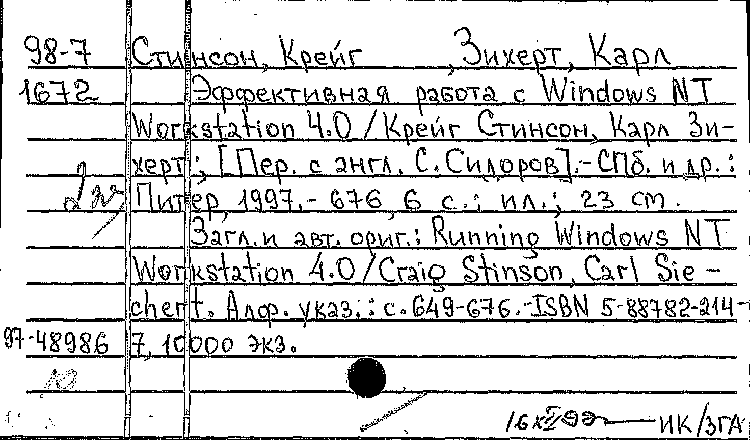 98-7 Стинсон, Крейг , Зихерт, Карл
1672 Эффективная работа с Windows NT
Workstation 4.0 / Крейг Стинсон, Карл Зи-
херт; [Пер. с англ. С. Сидоров].- СПб. и др. :
Питер, 1997.- 676, 6 с.; ил.; 23 cm.
Загл. и авт. ориг.: Running Windows NT
Workstation 4.0 / Craig Stinson, Carl Sie-
chert. Алф. указ.: с. 649-676.-ISBN 5-88782-214-
97-48986 7, 10000 экз.
ИК/ЗГА